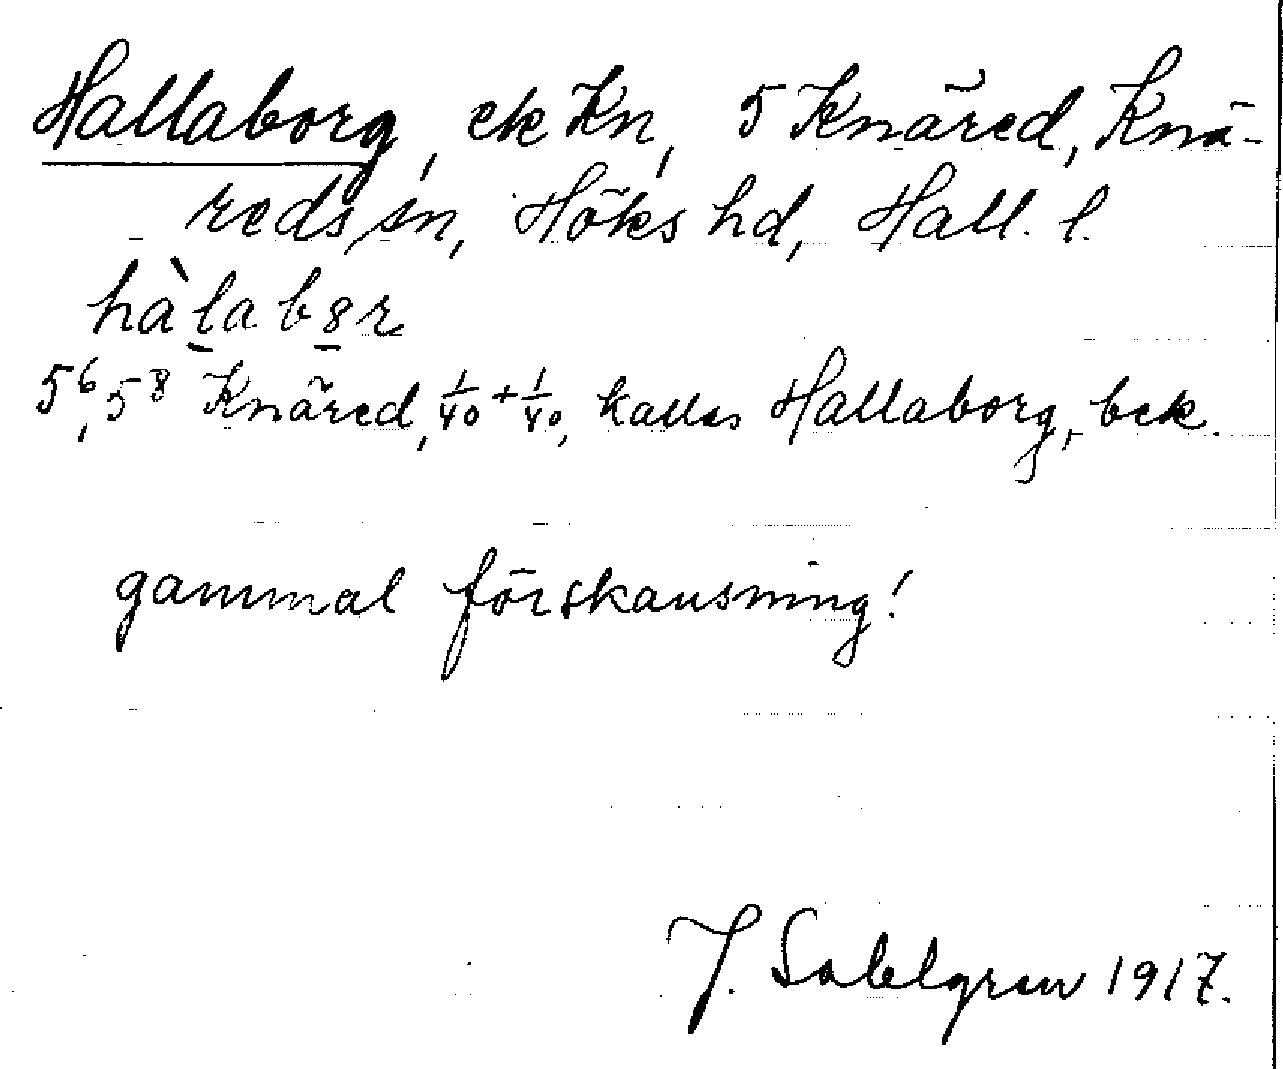 Hallaborg, ek Kn, 5 Knäred, Knä-
reds sn, Höks hd, Hall. l.
hàlabȣr
5⁶, 5⁸ Knäred, 1/40 + 1/40, kallas Hallaborg, bek.
gammal förskansning!
J. Sahlgren 1917.